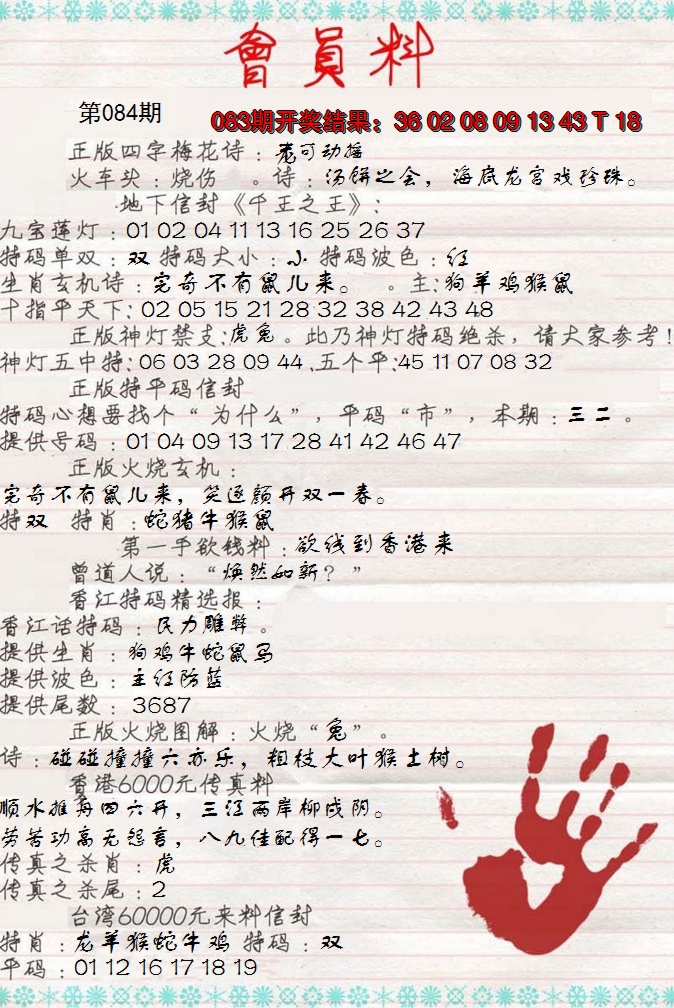 會員料
第084期
083期开奖结果：36 02 08 09 13 43 T 18
正版四字梅花诗：老可动摇
火车头：烧伤 。诗：汤饼之会，海底龙宫戏珍珠。
地下信封《千王之王》：
九宝莲灯：01 02 04 11 13 16 25 26 37
特码单双：双 特码大小：小 特码波色：红
生肖玄机诗：宅奇不有鼠儿来。 。主:狗羊鸡猴鼠
十指平天下: 02 05 15 21 28 32 38 42 43 48
正版神灯禁支:虎兔。此乃神灯特码绝杀，请大家参考!
神灯五中特:06 03 28 09 44 .五个平:45 11 07 08 32
正版特平码信封
特码心想要找个“为什么”，平码“市”，本期：三二。
提供号码：01 04 09 13 17 28 41 42 46 47
正版火烧玄机：
宅奇不有鼠儿来，笑逐颜开双一春。
特双 特肖：蛇猪牛猴鼠
第一手欲钱料：欲钱到香港来
曾道人说：“焕然如新？”
香江特码精选报：
香江话特码：民力雕弊。
提供生肖：狗鸡牛蛇鼠马
提供波色：主红防蓝
提供尾数：3687
正版火烧图解：火烧“兔”。
诗：碰碰撞撞六亦乐，粗枝大叶猴土树。
香港6000元传真料
顺水推舟四六开，三江两岸柳成阴。
劳苦功高无怨言，八九佳配得一七。
传真之杀肖：虎
传真之杀尾：2
台湾60000元来料信封
特肖：龙羊猴蛇牛鸡 特码：双
平码：01 12 16 17 18 19